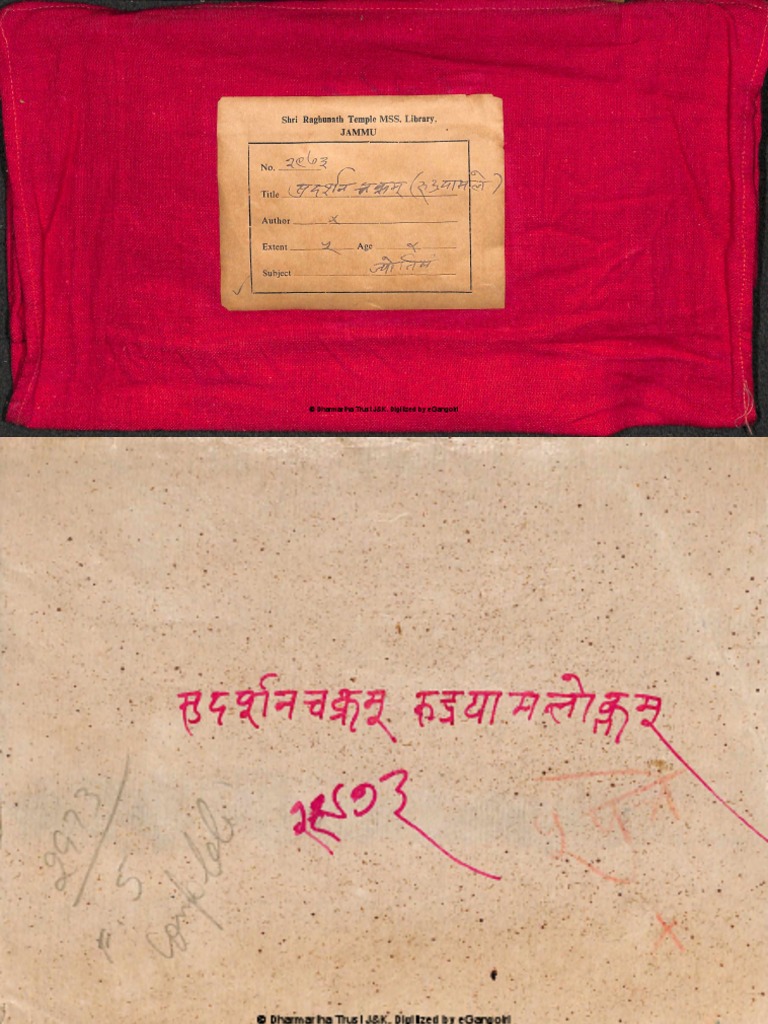 Shri Raghunath Temple MSS. Library,
JAMMU
No. २९७३
Title सुदर्शन चक्रम् (रुद्रयामले)
Author x
Extent ५ Age x
Subject ज्योतिषं
© Dharmartha Trust J&K. Digitized by eGangotri
सुदर्शनचक्रम् रुद्रयामलोक्तम्
२९७३
५ पत्र
2973
5
complete
x
© Dharmartha Trust J&K. Digitized by eGangotri